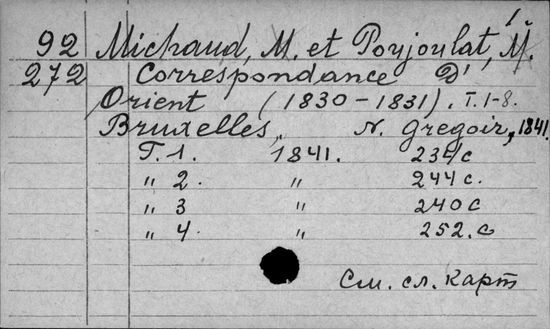 92 Michaud, M. et Poujoulat, M.
272 Correspondance D'
Orient (1830-1831). T. 1-8.
Bruxelles, N. Gregoir, 1841.
T. 1. 1841. 234 c
" 2. " 244 c.
" 3 " 240 c
" 4. " 252. c
См. сл. карт